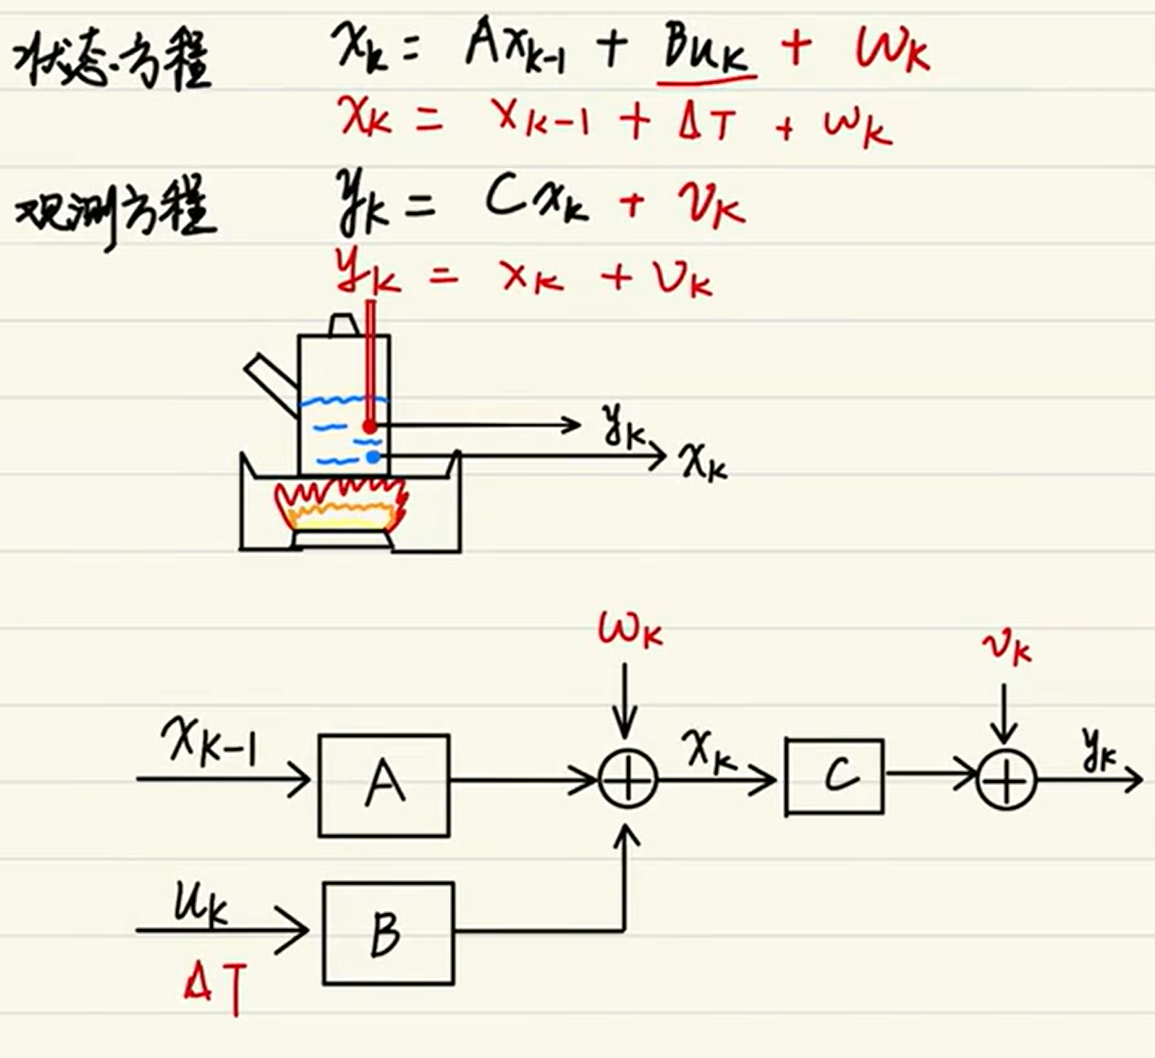 状态方程 x_k = Ax_{k-1} + Bu_k + ω_k
x_k = x_{k-1} + ΔT + ω_k
观测方程 y_k = Cx_k + v_k
y_k = x_k + v_k
y_k
x_k
ω_k
v_k
x_{k-1}
A
x_k
C
y_k
u_k
B
ΔT